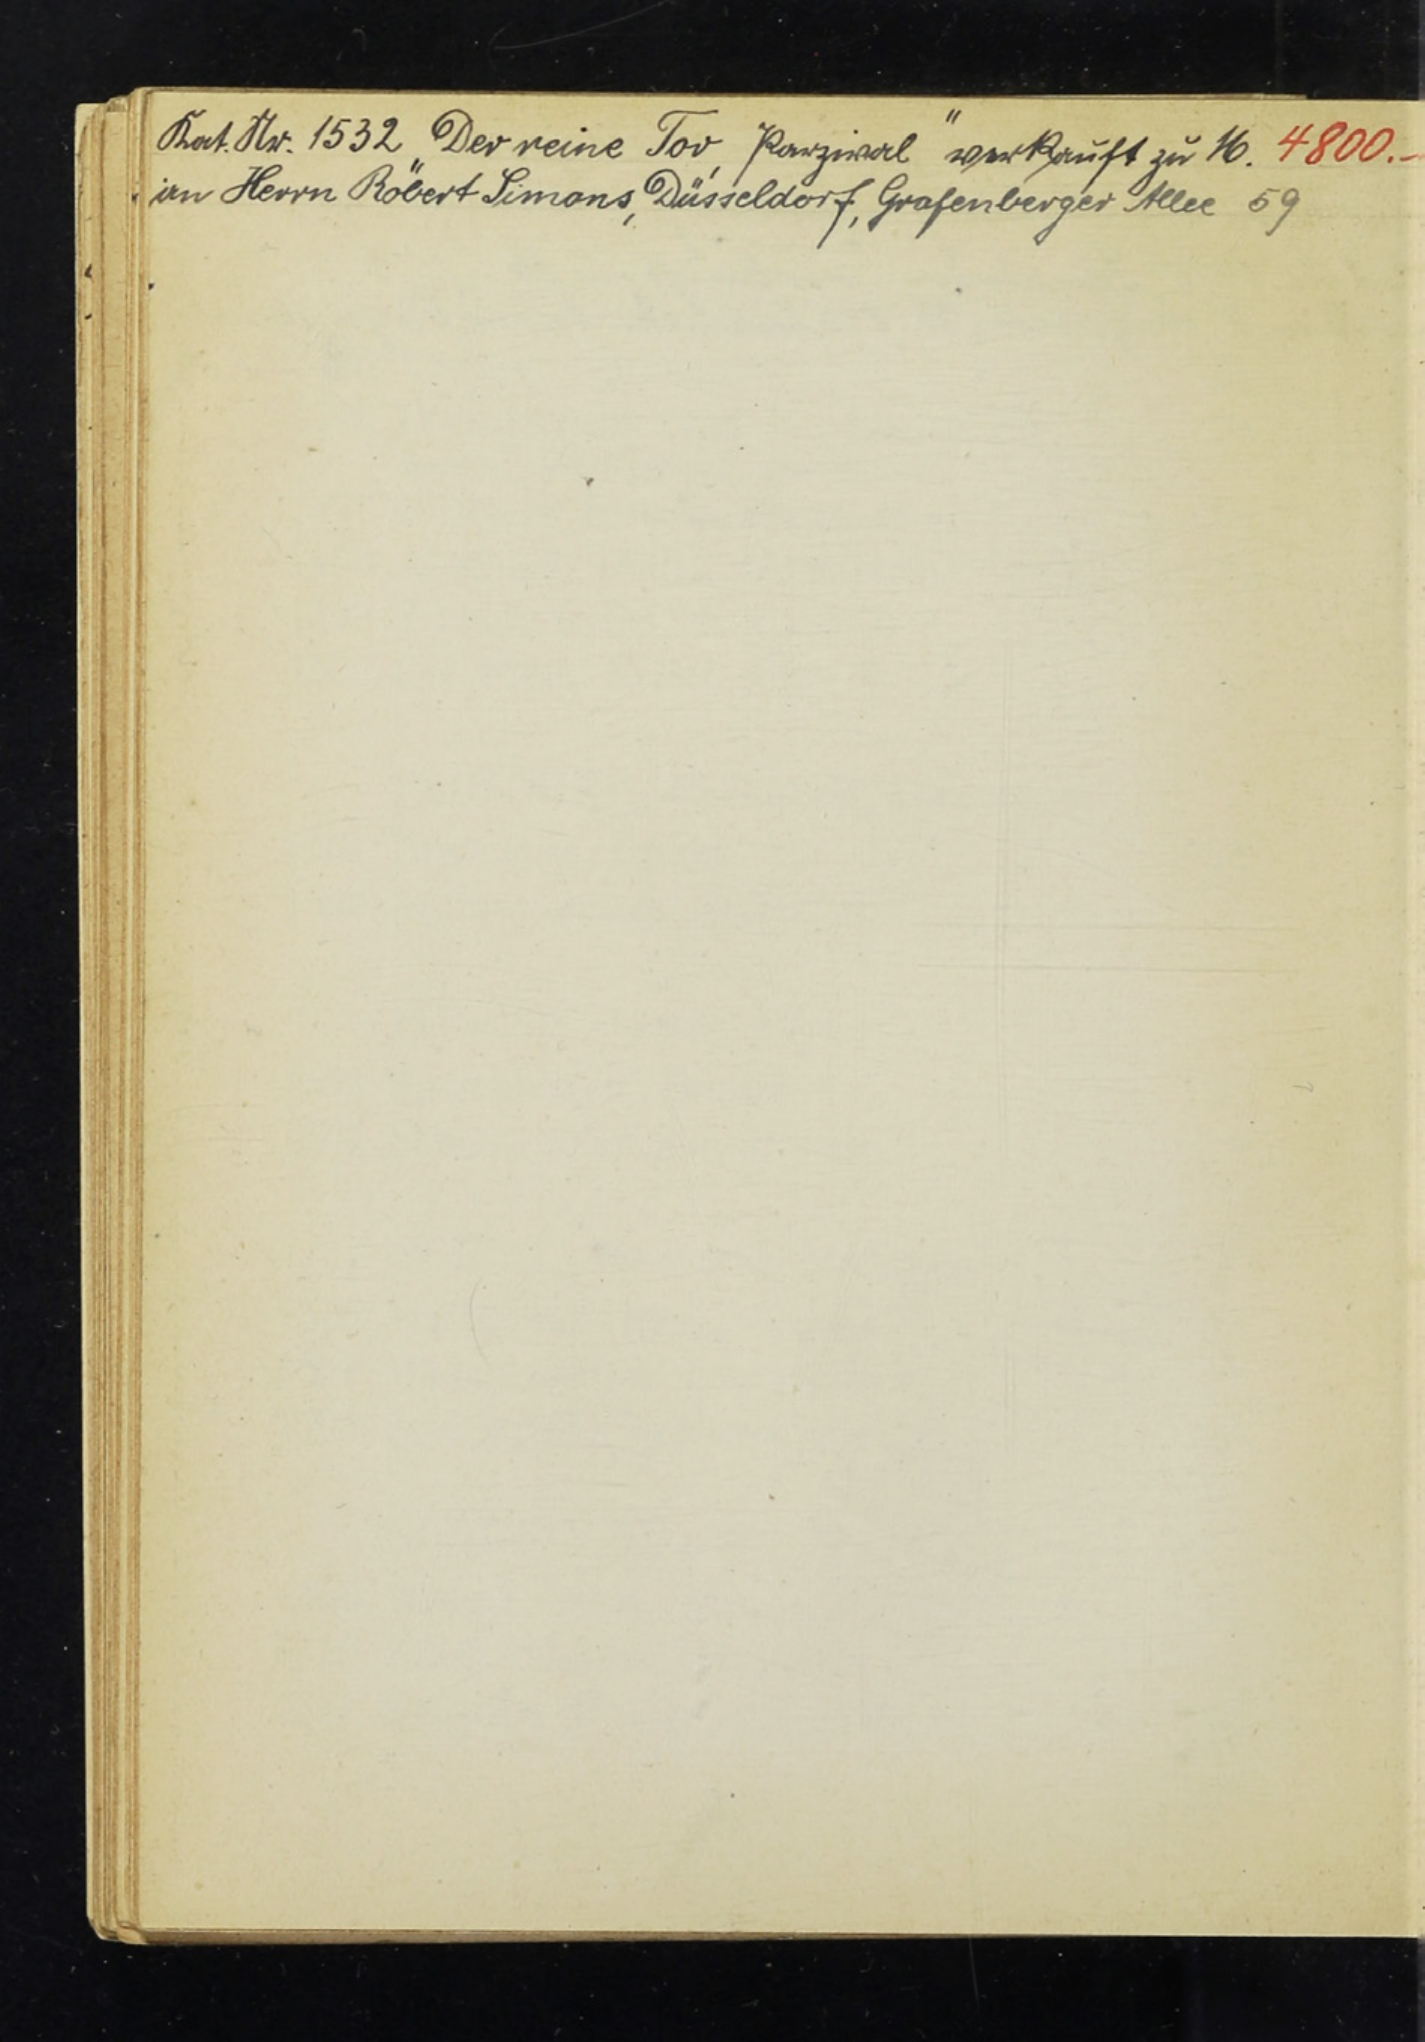 Kat. Nr. 1532 „Der reine Tor, Parzival" verkauft zu M. 4800.–
an Herrn Robert Simons, Düsseldorf, Grafenberger Allee 59